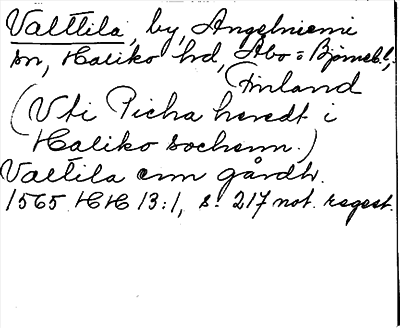 Valttila, by, Angelniemi
sn, Haliko hd, Åbo=Björneb. l.,
Finland
(Vti Picha heredt i
Haliko sochenn.)
Valtila enn gårdh.
1565 HH 13:1, s. 217 not. regest.